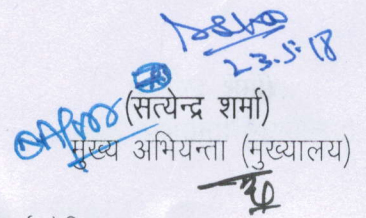 23.5.18
(सत्येन्द्र शर्मा)
मुख्य अभियन्ता (मुख्यालय)